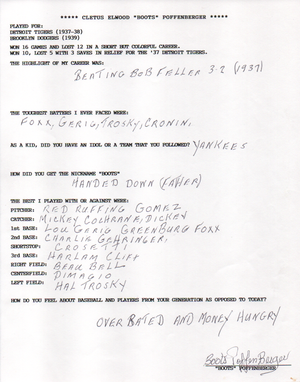 ***** CLETUS ELWOOD "BOOTS" POFFENBERGER *****
PLAYED FOR:
DETROIT TIGERS (1937-38)
BROOKLYN DODGERS (1939)
WON 16 GAMES AND LOST 12 IN A SHORT BUT COLORFUL CAREER.
WON 10, LOST 5 WITH 3 SAVES IN RELIEF FOR THE '37 DETROIT TIGERS.
THE HIGHLIGHT OF MY CAREER WAS:
BEATING BOB FELLER 3-2 (1937)
THE TOUGHEST BATTERS I EVER FACED WERE:
FOXX, GERIG, TROSKY, CRONIN,
AS A KID, DID YOU HAVE AN IDOL OR A TEAM THAT YOU FOLLOWED? YANKEES
HOW DID YOU GET THE NICKNAME "BOOTS"
HANDED DOWN (FATHER)
THE BEST I PLAYED WITH OR AGAINST WERE:
PITCHER: RED RUFFING GOMEZ
CATCHER: MICKEY COCHRANE, DICKEY
1st BASE: LOU GERIG GREENBURG FOXX
2nd BASE: CHARLIE GEHRINGER,
SHORTSTOP: CROSETTI
3rd BASE: HARLAM CLIFF
RIGHT FIELD: BEAU BELL
CENTERFIELD: DIMAGIO
LEFT FIELD: HAL TROSKY
HOW DO YOU FEEL ABOUT BASEBALL AND PLAYERS FROM YOUR GENERATION AS OPPOSED TO TODAY?
OVER RATED AND MONEY HUNGRY
Boots Poffenberger
"BOOTS" POFFENBERGER